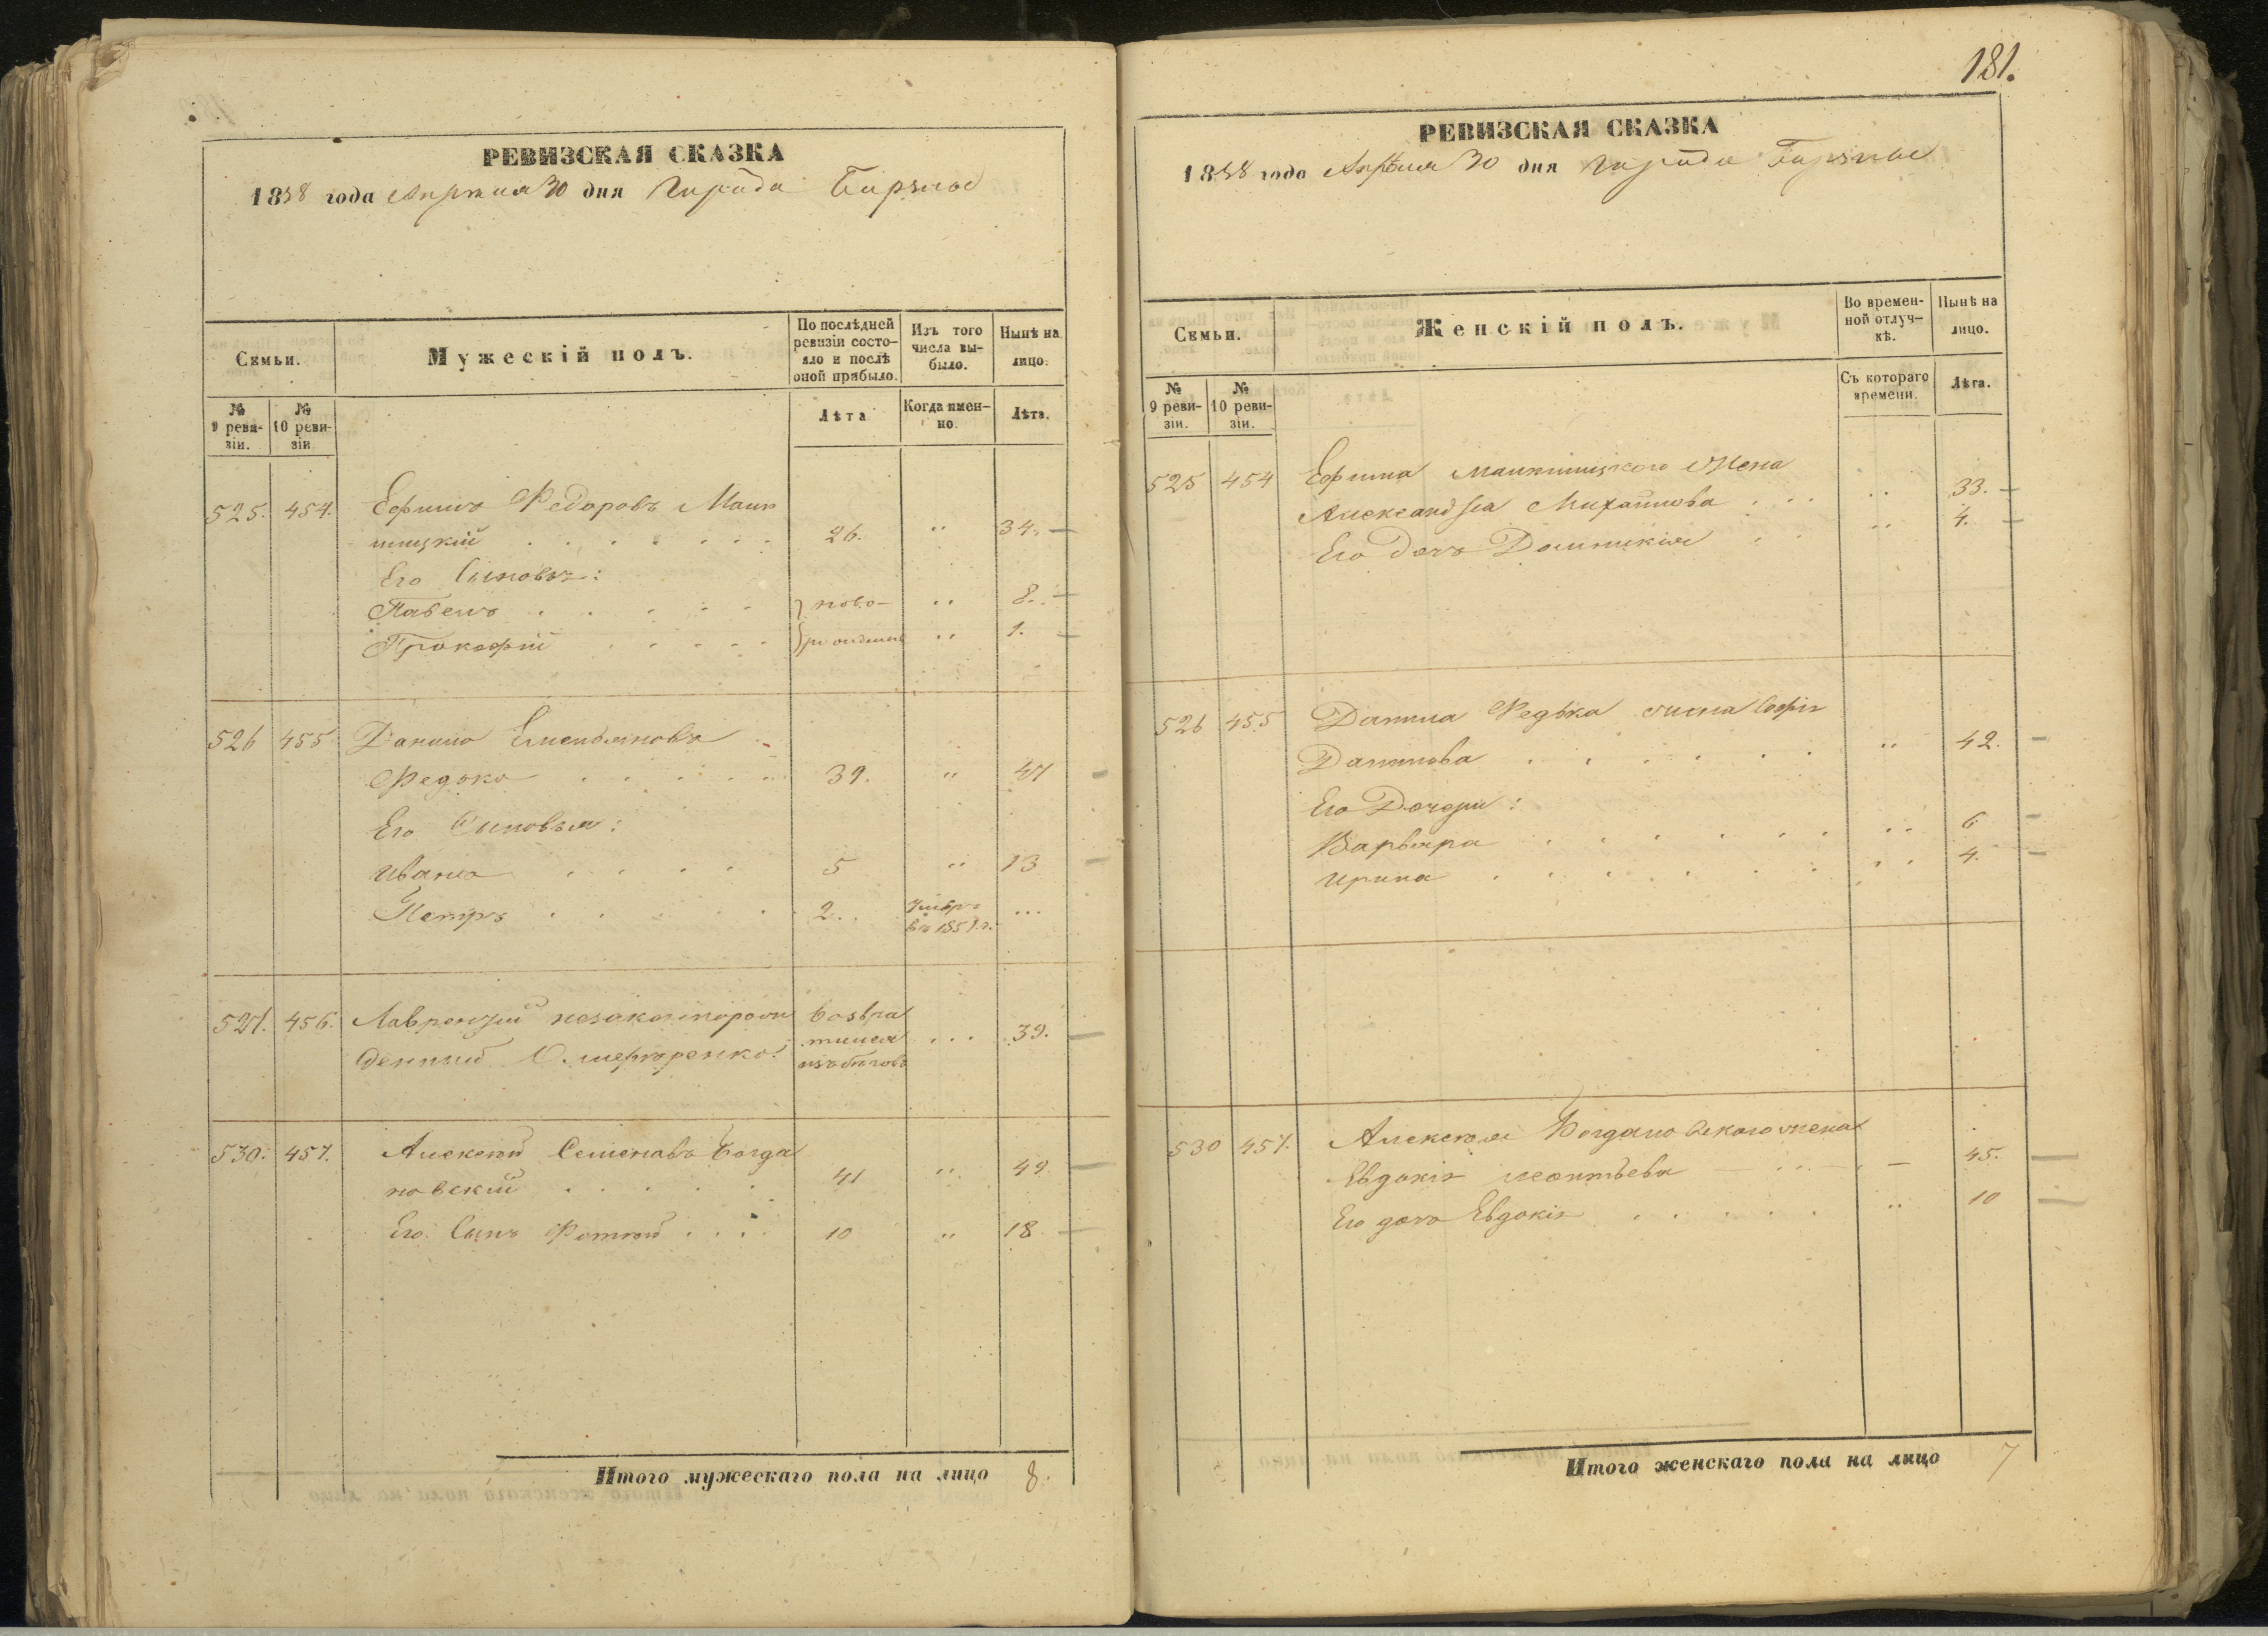 РЕВИЗСКАЯ СКАЗКА
1858 года Апреля 30 дня Города Борзны
Семьи.
Мужескій полъ.
По послѣдней ревизіи состояло и послѣ оной прибыло.
Изъ того числа выбыло.
Нынѣ на лицо.
№ 9 ревизіи.
№ 10 ревизіи.
Лѣта
Когда именно.
Лѣта.
525. 454. Ефимъ Федоровъ
шицкій 26. " 34.
Его Сыновья:
Павелъ ново- " 8.
Прокофій рожденные " 1.
526 455 Данило Емельяновъ
Федько 39. " 47
Его Сыновья:
Иванъ 5 " 13
Петръ 2 Умеръ въ 1851 г. ...
527. 456. Лаврентій незаконорож возвра
денный тился ... 39.
изъ бѣговъ
530. 457. Алексѣй Семеновъ Богда
новскій 41 " 49
Его Сынъ Фотій 10 " 18
Итого мужескаго пола на лицо 8.
181.
РЕВИЗСКАЯ СКАЗКА
1858 года Апрѣля 30 дня Города Борзны
Семьи.
Женскій полъ.
Во временной отлучкѣ.
Нынѣ на лицо.
№ 9 ревизіи.
№ 10 ревизіи.
Съ котораго времени.
Лѣта.
525 454 Ефима жена
Александра Михайлова " 33.
Его дочь Домникія " 4.
526 455 Данила Федька жена Софія
Данилова " 42.
Его Дочери:
Варвара " 6
Ирина " 4.
530 457. Алексѣя Богдановскаго жена
Евдокія Леонтьева 45.
Его дочь Евдокія " 10
Итого женскаго пола на лицо 7